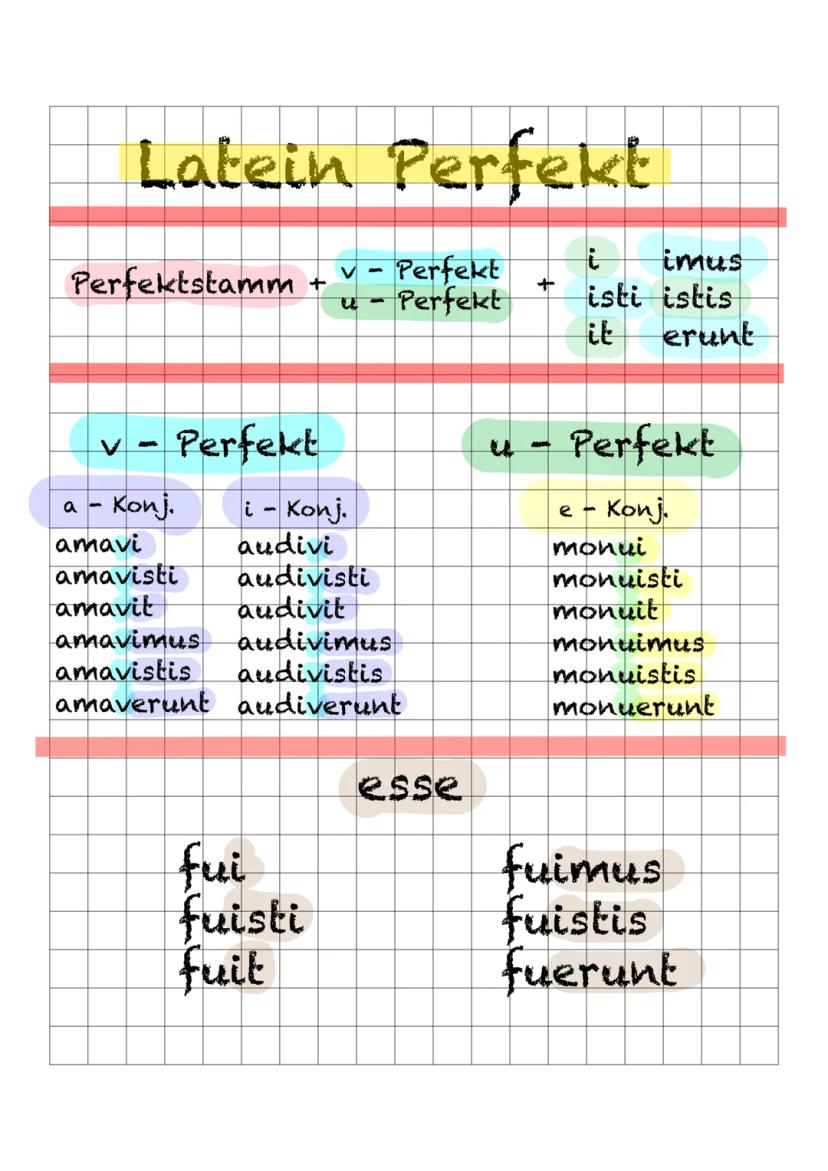 Latein Perfekt
Perfektstamm + v - Perfekt + i imus
u - Perfekt isti istis
it erunt
v - Perfekt u - Perfekt
a - Konj. i - Konj. e - Konj.
amavi audivi monui
amavisti audivisti monuisti
amavit audivit monuit
amavimus audivimus monuimus
amavistis audivistis monuistis
amaverunt audiverunt monuerunt
esse
fui fuimus
fuisti fuistis
fuit fuerunt